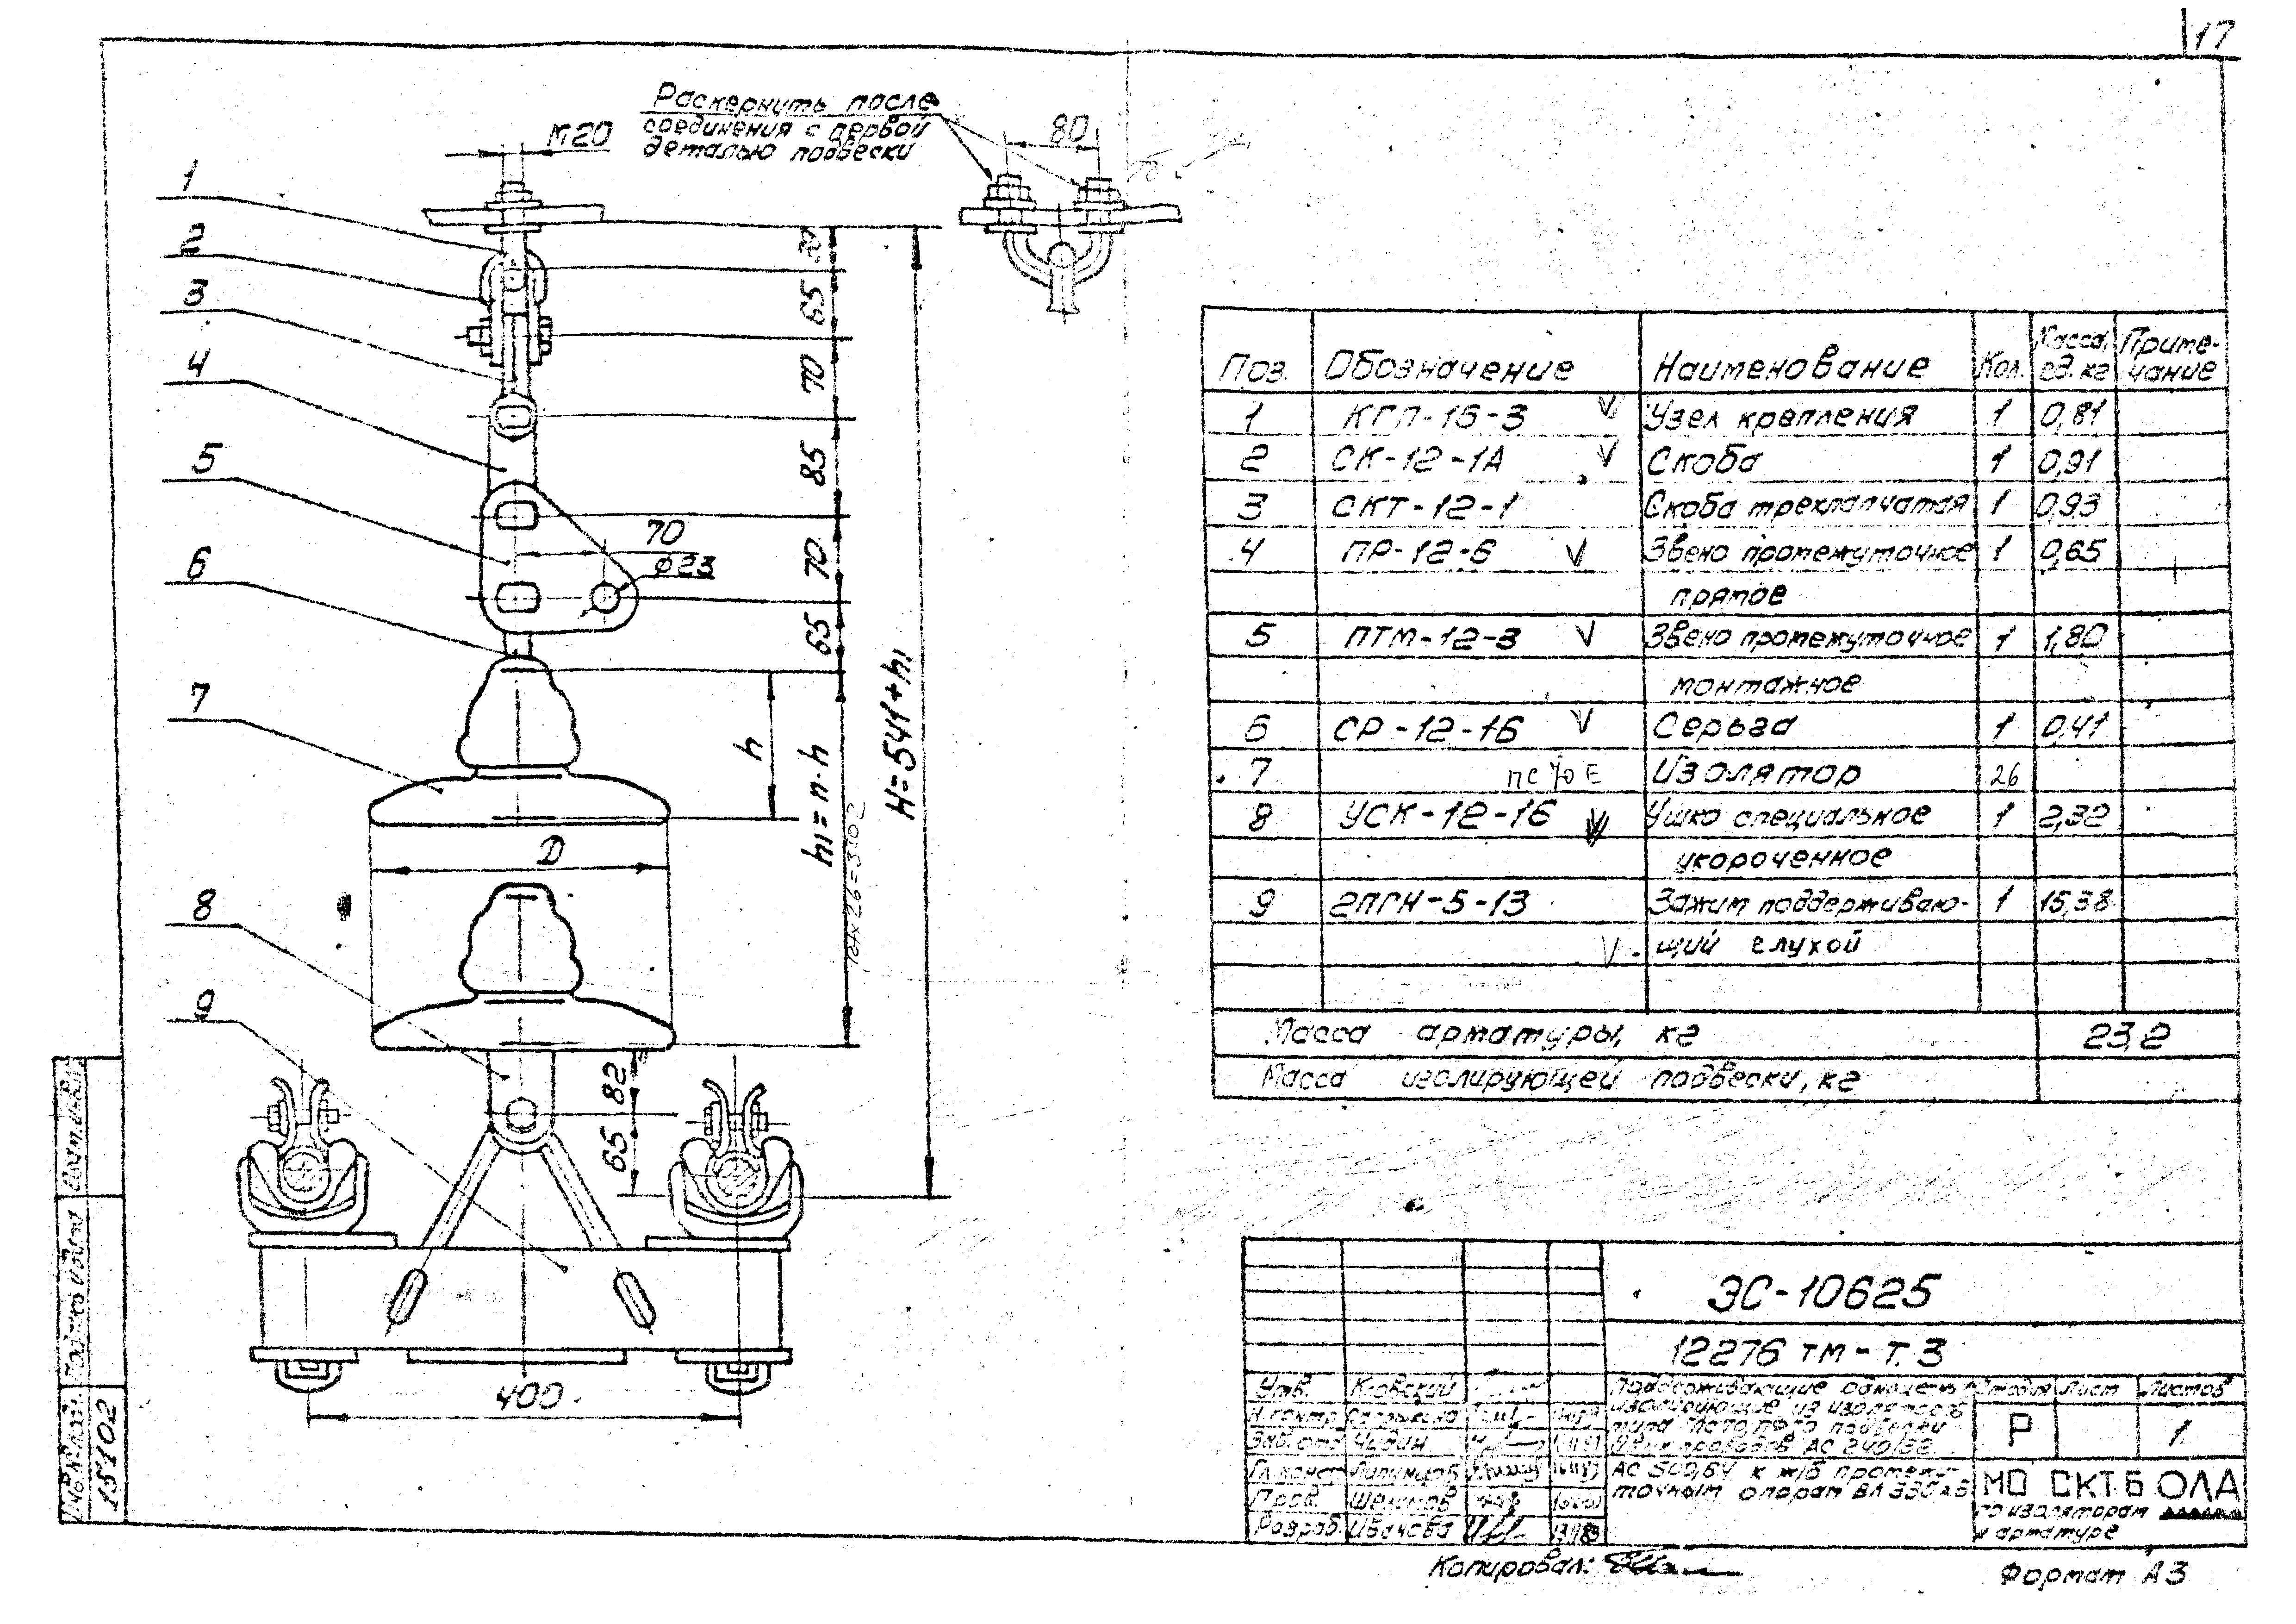 17
Раскернуть после
соединения с первой
деталью подвески
М20
80
1
2
3
4
5
6
7
8
9
65
70
85
70
65
70
Ф23
h
h1=n·h
H=541+h1
D
82
65
400
Поз. Обозначение Наименование Кол. Масса, ед. кг Приме-чание
1 КГП-16-3 V Узел крепления 1 0,81
2 СК-12-1А V Скоба 1 0,91
3 СКТ-12-1 Скоба трехлапчатая 1 0,93
4 ПР-12-6 V Звено промежуточное 1 0,65
прямое
5 ПТМ-12-3 V Звено промежуточное 1 1,80
монтажное
6 СР-12-16 V Серьга 1 0,41
7 ПС 70 Е Изолятор 26
8 УСК-12-16 V Ушко специальное 1 2,32
укороченное
9 2ПГН-5-13 Зажим поддерживаю- 1 15,38
V щий глухой
Масса арматуры, кг 23,2
Масса изолирующей подвески, кг
ЭС-10625
12276 тм-т.3
Утв.
Н.контр
Зав. отд Чидин
Гл.конст
Пров.
Разраб. Иванова
Поддерживающие одноцепн.
изолирующие из изоляторов
подвески
проводов АС 240/32
АС 500/64 к ж/б промежу-
точным опорам ВЛ 330кВ
Стадия Лист Листов
Р 1
МО СКТБ ОЛА
по изоляторам
и арматуре
Инв.№подл. Подпись и дата
15102
Копировал:
Формат А3